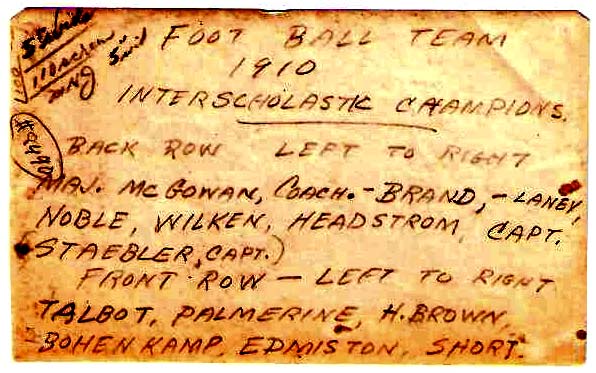 FOOT BALL TEAM
1910
INTERSCHOLASTIC CHAMPIONS.
#2490
BACK ROW LEFT TO RIGHT
MAJ. MCGOWAN, COACH.-BRAND,-LANEY,
NOBLE, WILKEN, HEADSTROM, CAPT.
STAEBLER, CAPT.)
FRONT ROW - LEFT TO RIGHT
TALBOT, PALMERINE, H. BROWN,
BOHENKAMP, EDMISTON, SHORT.